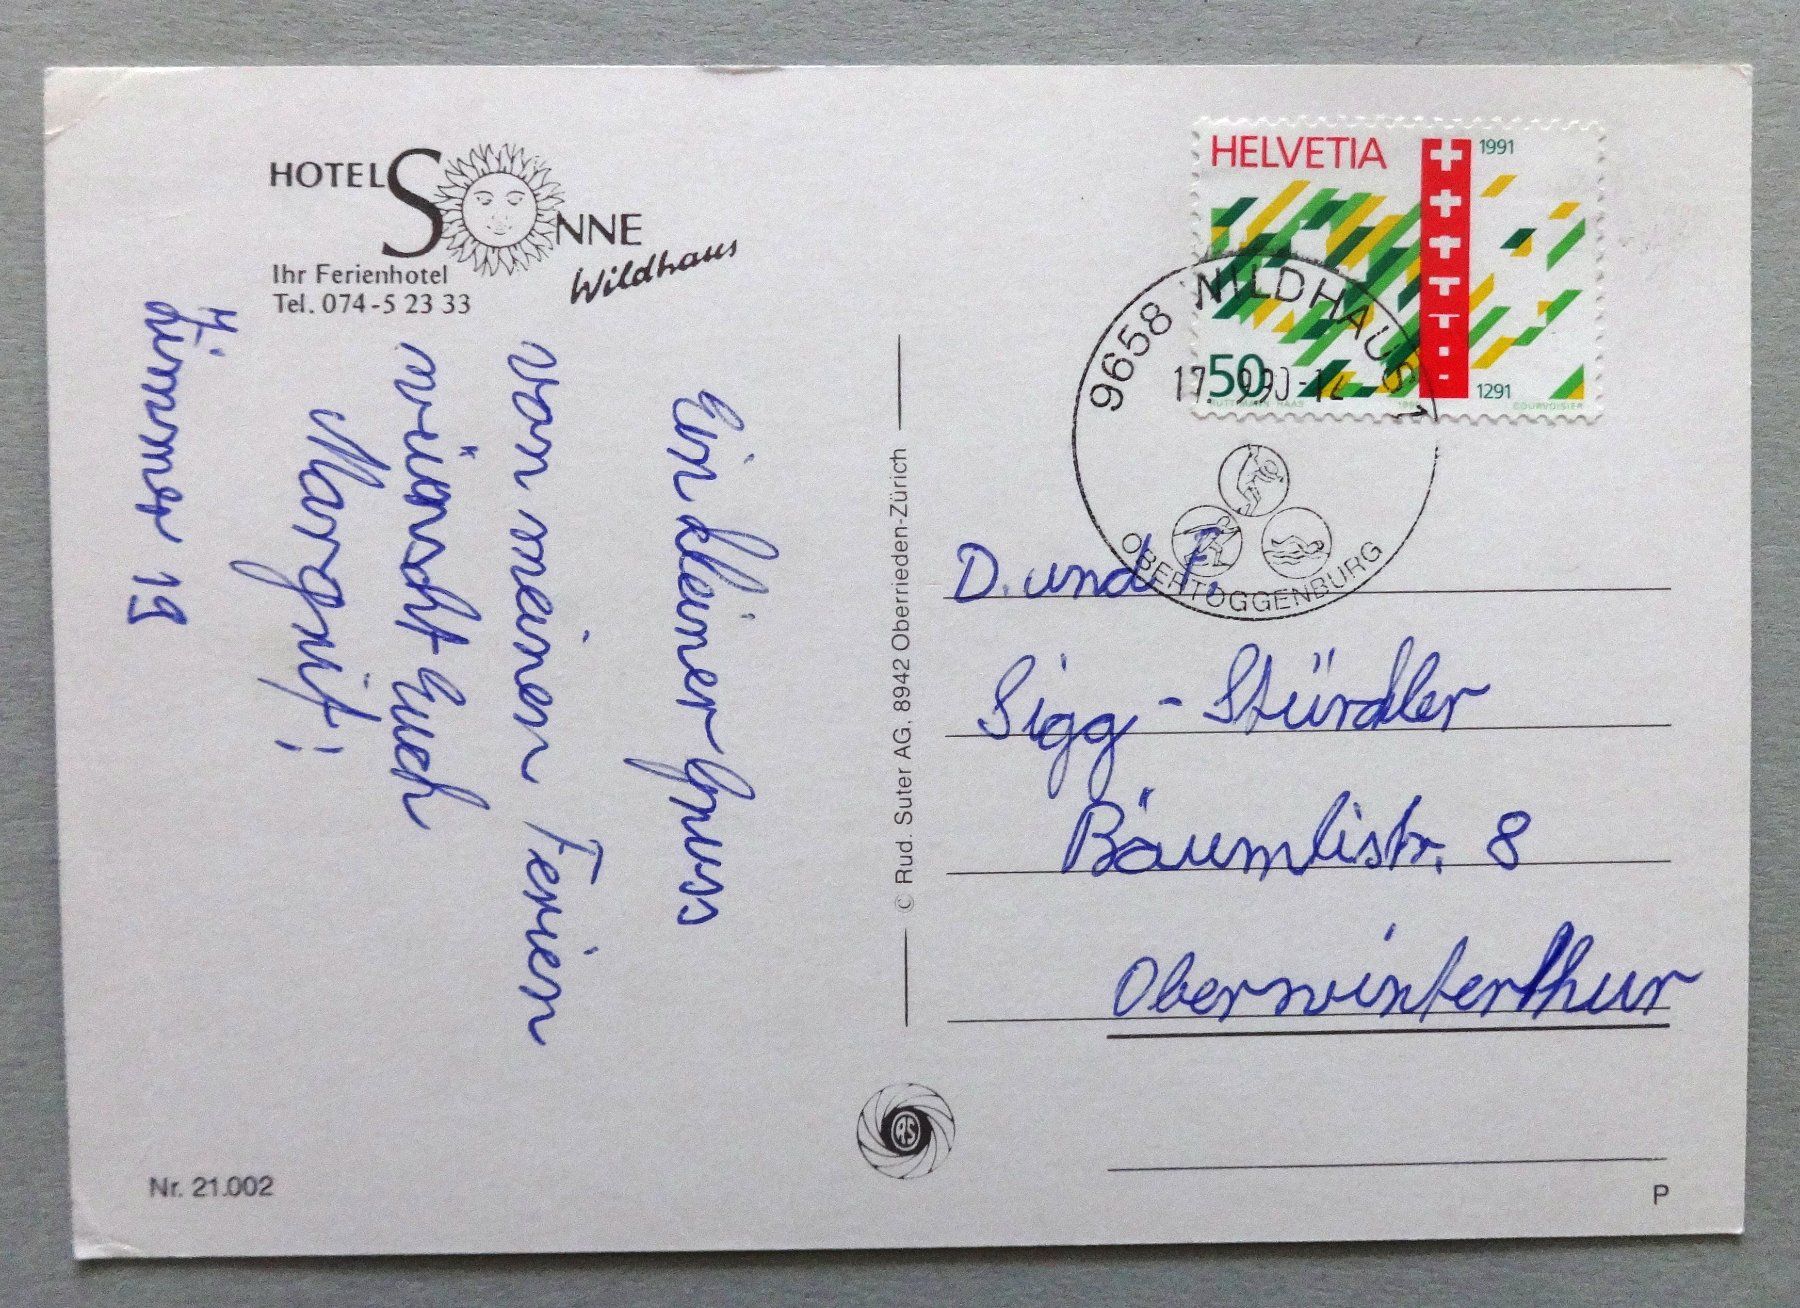 HOTEL SONNE
Wildhaus
Ihr Ferienhotel
Tel. 074-5 23 33
Ein kleiner Gruss
von meinen Ferien
wünscht Euch
Margrit!
Zimmer 19
Nr. 21.002
© Rud. Suter AG, 8942 Oberrieden-Zürich
RS
HELVETIA
1991
50
1291
COURVOISIER
9658 WILDHAUS 1
OBERTOGGENBURG
D. und
Sigg-Stürdler
Bäumlistr. 8
Oberwinterthur
P